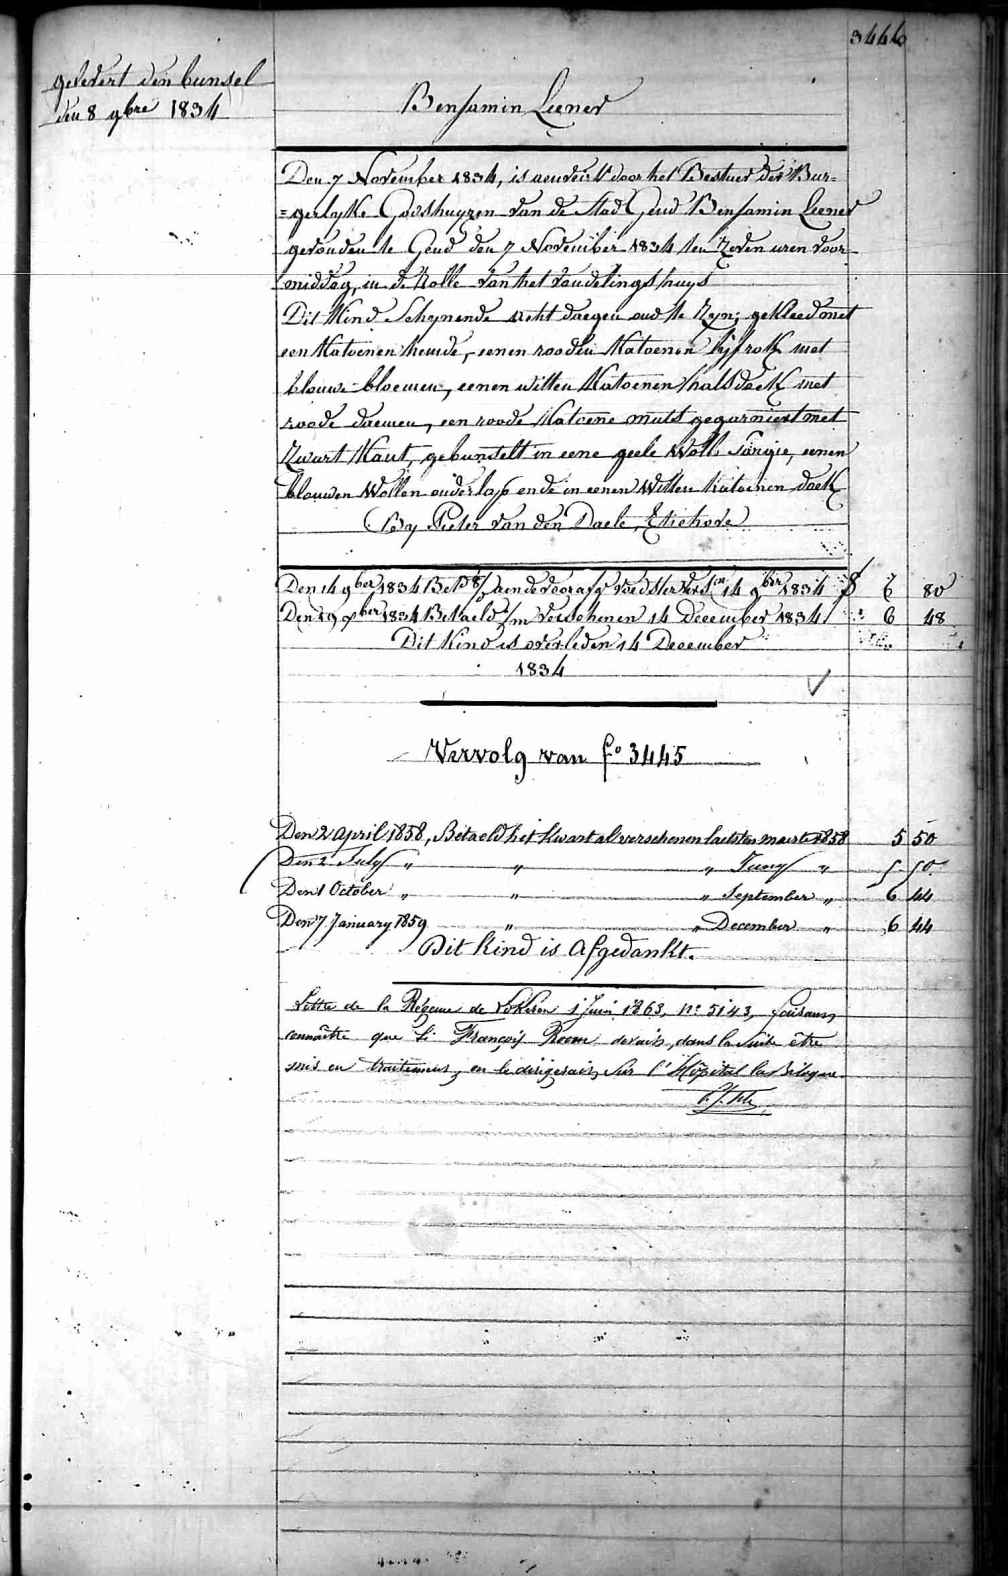 3446
gelevert den bunsel
den 8 9bre 1834
Benjamin Leener
Den 7 November 1834, is aenveirt door het Bestuer der Bur=
=gerlyke Godshuyzen van de Stad Gend Benjamin Leener
gevonden te Gend den 7 November 1834 ten Zeven uren voor
middag, in de Rolle van het vondelingshuys
Dit Kind Schynende acht daegen oud te Zyn; gekleed met
een Katoenen hemde, eenen rooden Katoenen lijfrok met
blauwe bloemen, eenen witten Katoenen halsdoek met
roode daemen, een roode Katoene muts gegarniert met
Zwart Kant, gebunselt in eene geele Wolle Sargie, eenen
blauwen Wollen onderlap ende in eenen Witten Katoenen doek
By Pieter van den Daele, Etichove
Den 14 9ber 1834 Bet. aen de voorafg. voedster 14 9ber 1834 f 6 80
Den 19 xber 1834 Betaeld t/m verschenen 14 December 1834 " 6 48
Dit Kind is overleden 14 December
1834
Vervolg van fo 3445
Den 2 April 1858, Betaeld het kwartal verschenen laetsten maerte 1858 5 50
Den 2 July " " " Juny " 5 50
Den 1 October " " " September " 6 44
Den 7 January 1859 " " December " 6 44
Dit kind is Afgedankt.
Lettre de la Régence de Lokeren 1 Juin 1863, No 5143, faisant
connaître que Si François Roome devait, dans la suite être
mis en traitement, on le dirigerait, sur l'Hôpital la Biloque